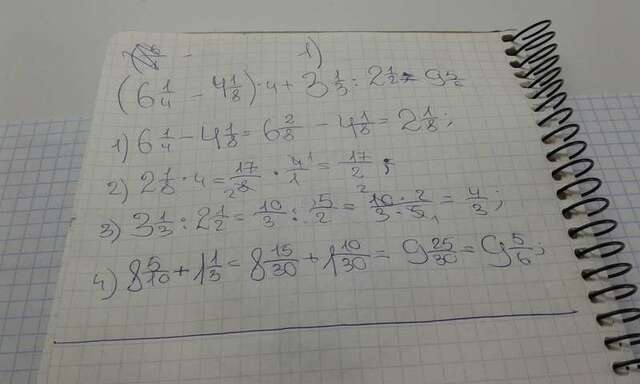 1)
(6 1/4 - 4 1/8) · 4 + 3 1/3 : 2 1/2 = 9 5/6
1) 6 1/4 - 4 1/8 = 6 2/8 - 4 1/8 = 2 1/8;
2) 2 1/8 · 4 = 17/8 · 4/1 = 17/2;
3) 3 1/3 : 2 1/2 = 10/3 : 5/2 = 10·2/3·5 = 4/3;
4) 8 5/10 + 1 1/3 = 8 15/30 + 1 10/30 = 9 25/30 = 9 5/6;